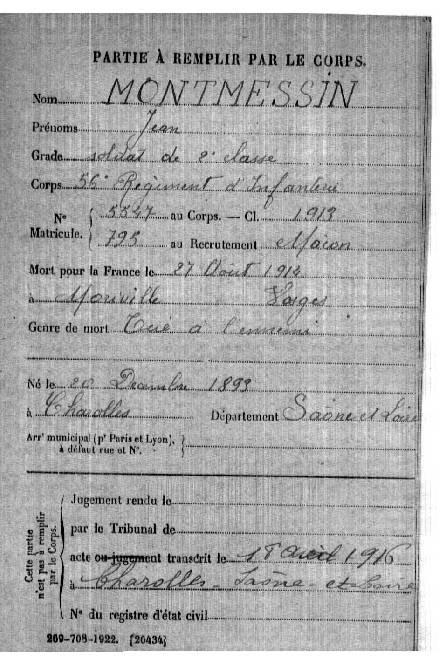 PARTIE À REMPLIR PAR LE CORPS.
Nom MONTMESSIN
Prénoms Jean
Grade soldat de 2e classe
Corps 56e Régiment d'Infanterie
N° Matricule. { 5547 au Corps. — Cl. 1913
795 au Recrutement Mâcon
Mort pour la France le 27 Août 1914
à Vosges
Genre de mort Tué à l'ennemi
Né le 20 Décembre 1893
à Charolles Département Saône et Loire
Arrt municipal (pr Paris et Lyon), }
à défaut rue et N°.
Cette partie n'est pas à remplir par le Corps.
Jugement rendu le
par le Tribunal de
acte ou jugement transcrit le 18 avril 1916
à Charolles - Saône - et Loire
N° du registre d'état civil
269-708-1922. [20434]